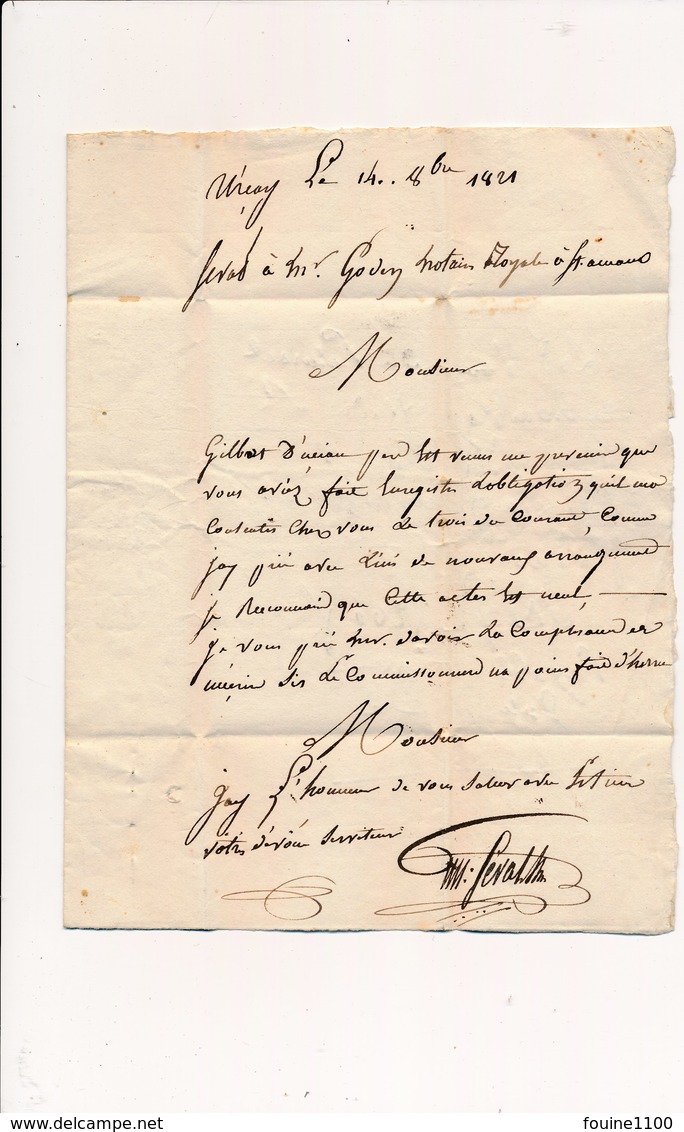 Uréay Le 14. 8bre 1821
à Mr. Godin Notaire Royale à St. amand
Monsieur
Gilbert père Est venus me prevenir que
vous aviéz fait Enregistre Lobligation quil ma
Consentis Chez vous Le trois du Courant, Comme
jay pris avec Luis de nouvaux arrangement
je Reconnaid que Cette actes Est neul,
je vous prié Mr. davoir La Complesance de
méerire Sis Le Commissionnere na poins fait d'herreur
Monsieur
jay L'honneur de vous saluer avec Estime
votre dévoué Serviteur
delcampe.net
fouine1100